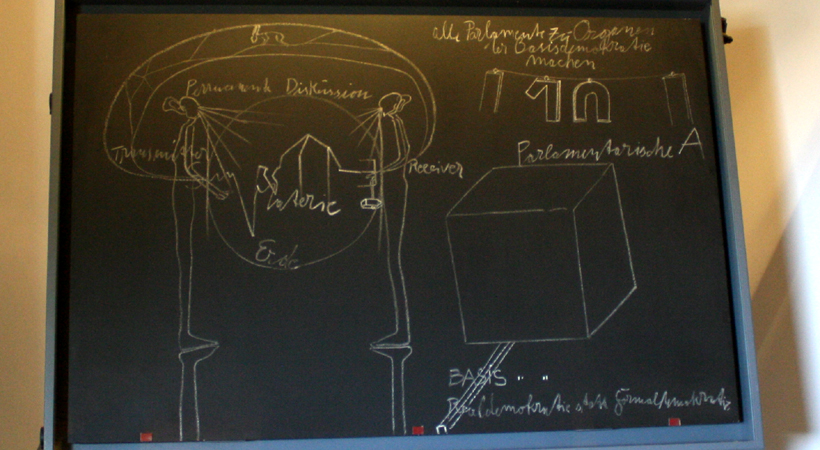 alle Parlamente zu Organen
der Basisdemokratie
machen
Permanente Diskussion
Transmitter
Receiver
Materie
Erde
Parlamentarische A
BASIS
Realdemokratie statt Formaldemokratie